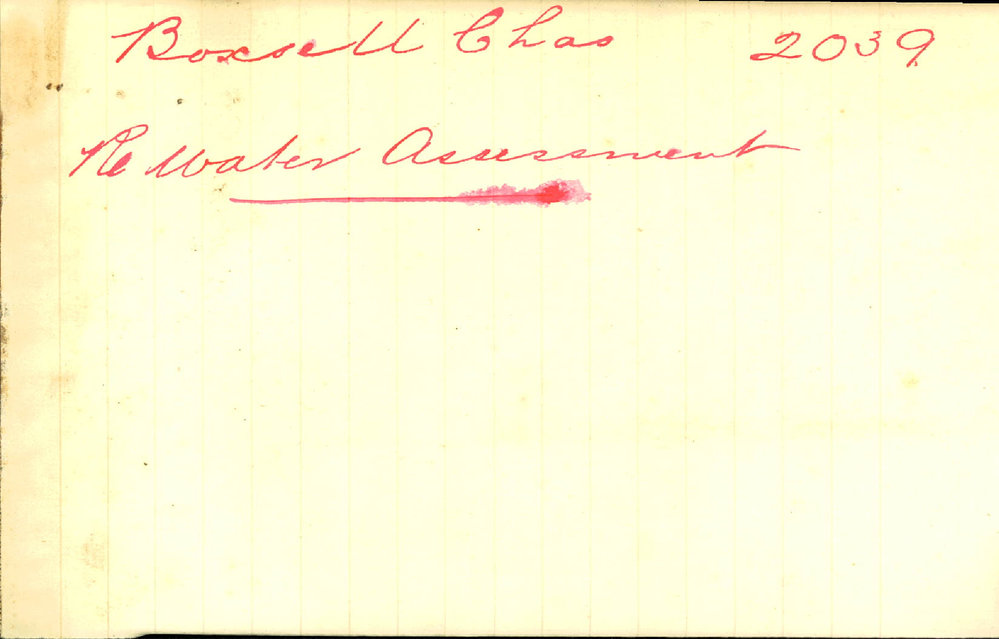 Boxsell Chas 2039
Re Water Assessment